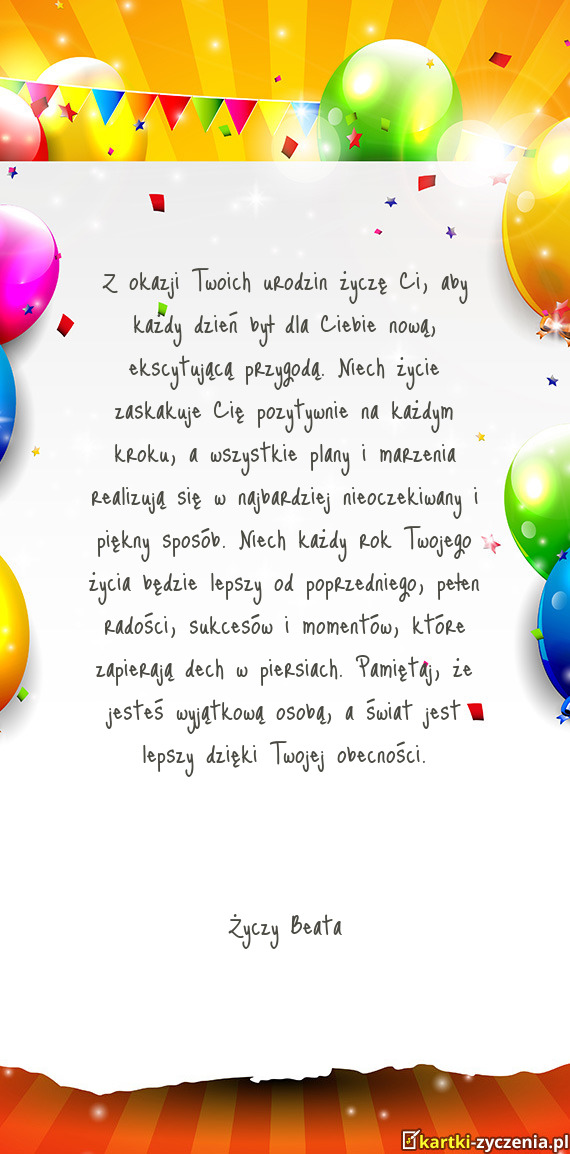 Z okazji Twoich urodzin życzę Ci, aby
każdy dzień był dla Ciebie nową,
ekscytującą przygodą. Niech życie
zaskakuje Cię pozytywnie na każdym
kroku, a wszystkie plany i marzenia
realizują się w najbardziej nieoczekiwany i
piękny sposób. Niech każdy rok Twojego
życia będzie lepszy od poprzedniego, pełen
radości, sukcesów i momentów, które
zapierają dech w piersiach. Pamiętaj, że
jesteś wyjątkową osobą, a świat jest
lepszy dzięki Twojej obecności.
Życzy Beata
kartki-zyczenia.pl